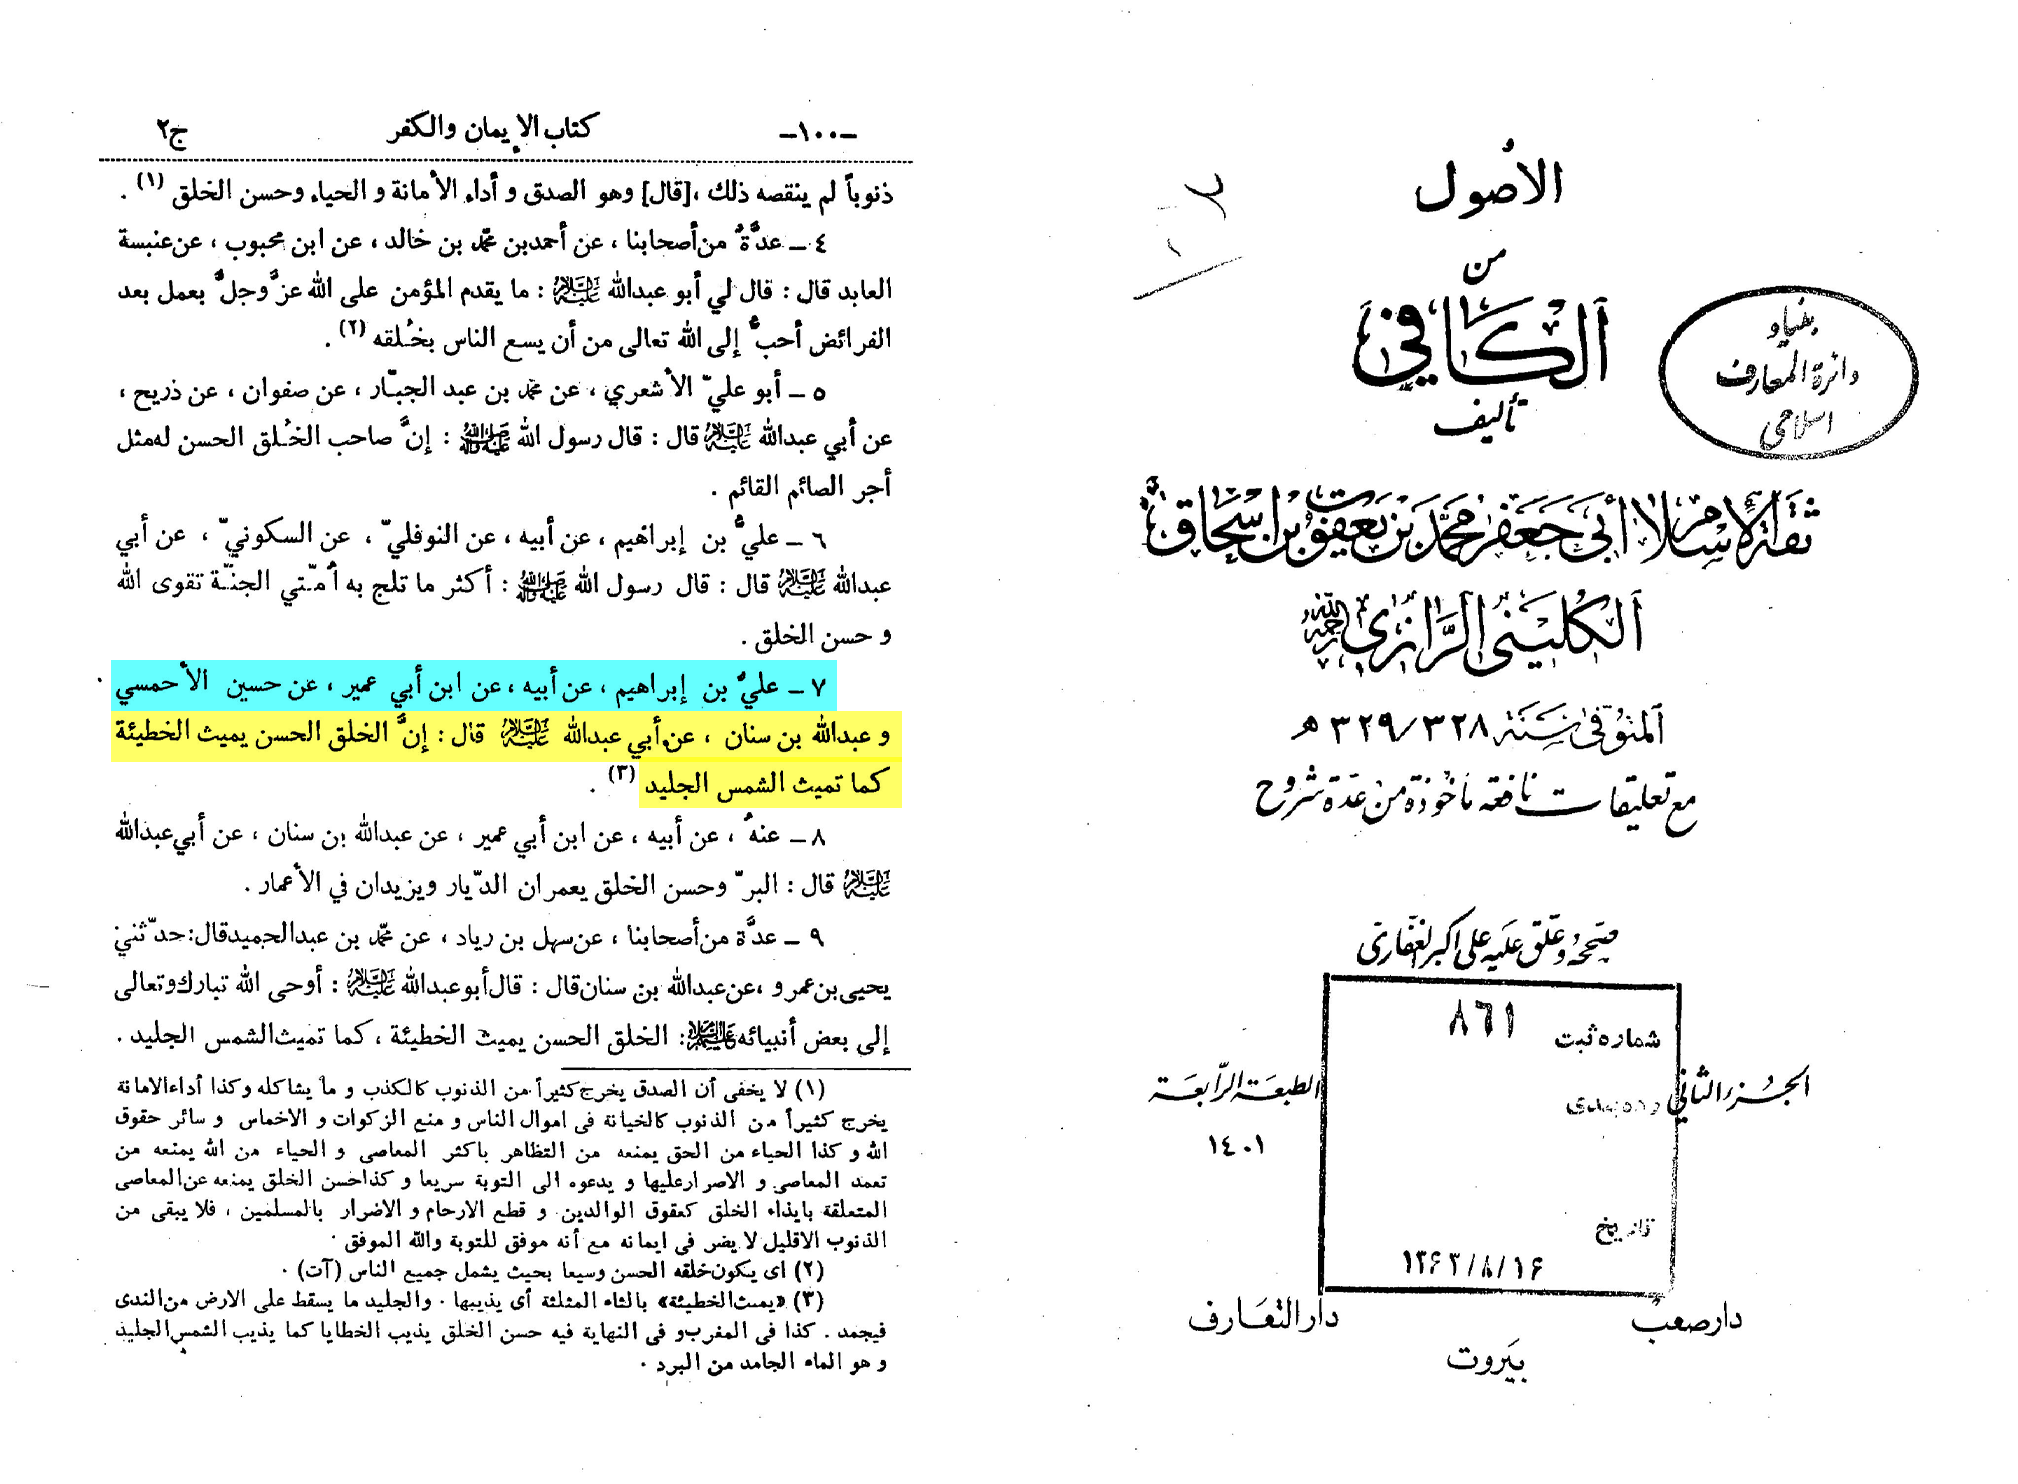 الأصول
من
الكافي
تأليف
ثقة الإسلام أبي جعفر محمد بن يعقوب بن إسحاق
الكليني الرازي رحمه الله
المتوفى سنة ٣٢٨/٣٢٩ ه
مع تعليقات نافعة مأخوذة من عدة شروح
صححه وعلق عليه علي اكبر الغفاري
بنیاد
دائرة المعارف
اسلامی
شماره ثبت ٨٦١
رده بندی
تاریخ
١٣٦٣/٨/١٦
الجزء الثاني
الطبعة الرابعة
١٤٠١
دار صعب
دار التعارف
بيروت
-١٠٠- كتاب الإيمان والكفر ج٢
ذنوباً لم ينقصه ذلك ،[قال] وهو الصدق و أداء الأمانة و الحياء وحسن الخلق (١) .
٤ ـ عدَّةٌ من أصحابنا ، عن أحمدبن محمّد بن خالد ، عن ابن محبوب ، عن عنبسة
العابد قال : قال لي أبو عبدالله عليه السلام : ما يقدم المؤمن على الله عزَّ وجلَّ بعمل بعد
الفرائض أحبَّ إلى الله تعالى من أن يسع الناس بخُلقه (٢) .
٥ ـ أبو عليّ الأشعري ، عن محمّد بن عبد الجبّار ، عن صفوان ، عن ذريح ،
عن أبي عبدالله عليه السلام قال : قال رسول الله صلى الله عليه وآله : إنَّ صاحب الخُلق الحسن له مثل
أجر الصائم القائم .
٦ ـ عليُّ بن إبراهيم ، عن أبيه ، عن النوفليّ ، عن السكونيّ ، عن أبي
عبدالله عليه السلام قال : قال رسول الله صلى الله عليه وآله : أكثر ما تلج به أُمّتي الجنّة تقوى الله
و حسن الخلق .
٧ ـ عليُّ بن إبراهيم ، عن أبيه ، عن ابن أبي عمير ، عن حسين الأحمسي
و عبدالله بن سنان ، عن أبي عبدالله عليه السلام قال : إنَّ الخلق الحسن يميث الخطيئة
كما تميث الشمس الجليد (٣) .
٨ ـ عنهُ ، عن أبيه ، عن ابن أبي عمير ، عن عبدالله بن سنان ، عن أبي عبدالله
عليه السلام قال : البرّ وحسن الخلق يعمران الدّيار ويزيدان في الأعمار .
٩ ـ عدَّة من أصحابنا ، عن سهل بن زياد ، عن محمّد بن عبدالحميد قال: حدّثني
يحيى بن عمرو ، عن عبدالله بن سنان قال : قال أبو عبدالله عليه السلام : أوحى الله تبارك وتعالى
إلى بعض أنبيائه عليهم السلام : الخلق الحسن يميث الخطيئة ، كما تميث الشمس الجليد .
(١) لا يخفى أن الصدق يخرج كثيراً من الذنوب كالكذب و ما يشاكله وكذا أداء الامانة
يخرج كثيراً من الذنوب كالخيانة فى اموال الناس و منع الزكوات و الاخماس و سائر حقوق
الله و كذا الحياء من الحق يمنعه من التظاهر باكثر المعاصى و الحياء من الله يمنعه من
تعمد المعاصى و الاصرار عليها و يدعوه الى التوبة سريعا و كذا حسن الخلق يمنعه عن المعاصى
المتعلقة بايذاء الخلق كعقوق الوالدين و قطع الارحام و الاضرار بالمسلمين ، فلا يبقى من
الذنوب الاقليل لا يضر فى ايمانه مع أنه موفق للتوبة والله الموفق .
(٢) اى يكون خلقه الحسن وسيعا بحيث يشمل جميع الناس (آت) .
(٣) «يميث الخطيئة» بالثاء المثلثة أى يذيبها . والجليد ما يسقط على الارض من الندى
فيجمد . كذا فى المغرب و فى النهاية فيه حسن الخلق يذيب الخطايا كما يذيب الشمس الجليد
و هو الماء الجامد من البرد .